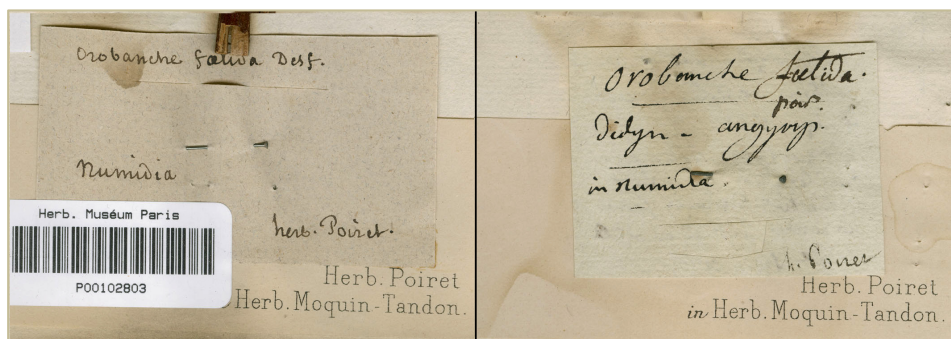 Orobanche fœtida Desf.
Numidia
herb. Poiret.
Herb. Muséum Paris
P00102803
Herb. Poiret
Herb. Moquin-Tandon.
Orobanche fœtida.
poir.
Didyn - angyosp.
in numidia.
h. Poiret
Herb. Poiret
in Herb. Moquin-Tandon.